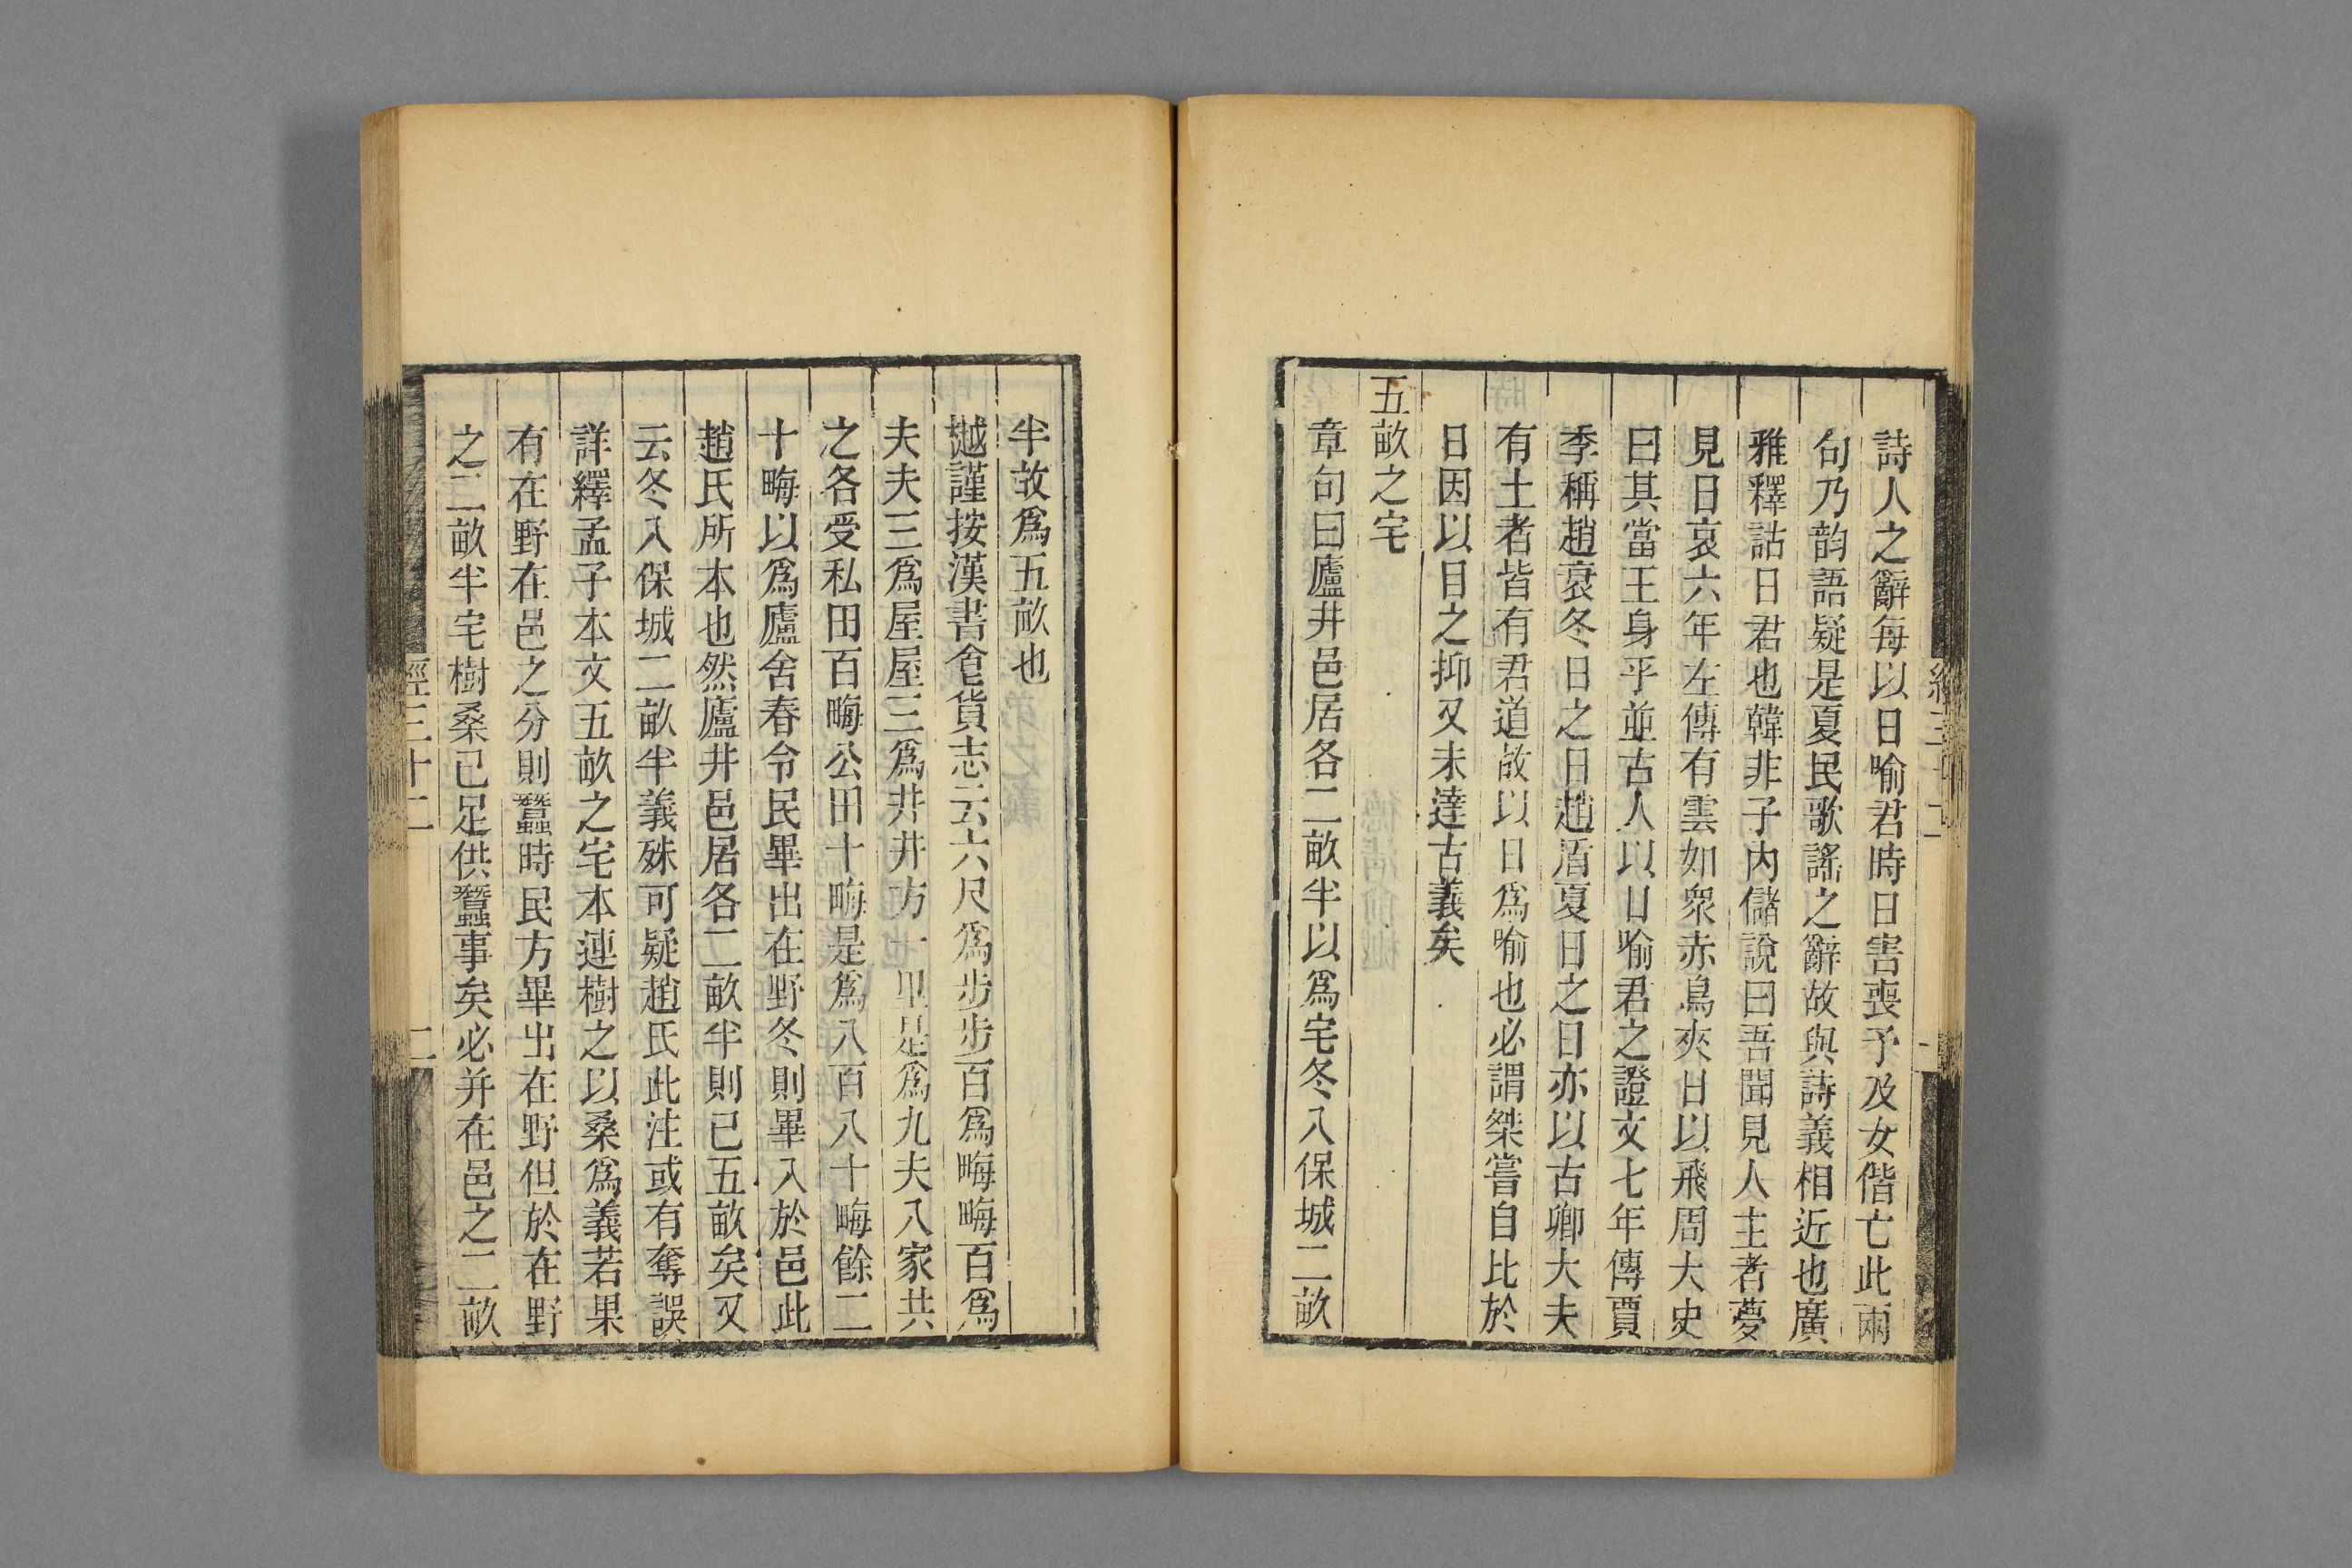 詩人之辭每以日喻君時日害喪予及女偕亡此兩
句乃韵語疑是夏民歌謠之辭故與詩義相近也廣
雅釋詁日君也韓非子內儲說曰吾聞見人主者夢
見日哀六年左傳有雲如衆赤鳥夾日以飛周大史
曰其當王身乎並古人以日喻君之證文七年傳賈
季稱趙衰冬日之日趙盾夏日之日亦以古卿大夫
有土者皆有君道故以日爲喻也必謂桀嘗自比於
日因以目之抑又未達古義矣
五畝之宅
章句曰廬井邑居各二畝半以爲宅冬入保城二畝
半故爲五畝也
樾謹按漢書食貨志云六尺爲步步百爲畮畮百爲
夫夫三爲屋屋三爲井井方一里是爲九夫八家共
之各受私田百畮公田十畮是爲八百八十畮餘二
十畮以爲廬舍春令民畢出在野冬則畢入於邑此
趙氏所本也然廬井邑居各二畝半則已五畝矣又
云冬入保城二畝半義殊可疑趙氏此注或有奪誤
詳繹孟子本文五畝之宅本連樹之以桑爲義若果
有在野在邑之分則蠶時民方畢出在野但於在野
之二畝半宅樹桑已足供蠶事矣必并在邑之二畝
經三十二
二